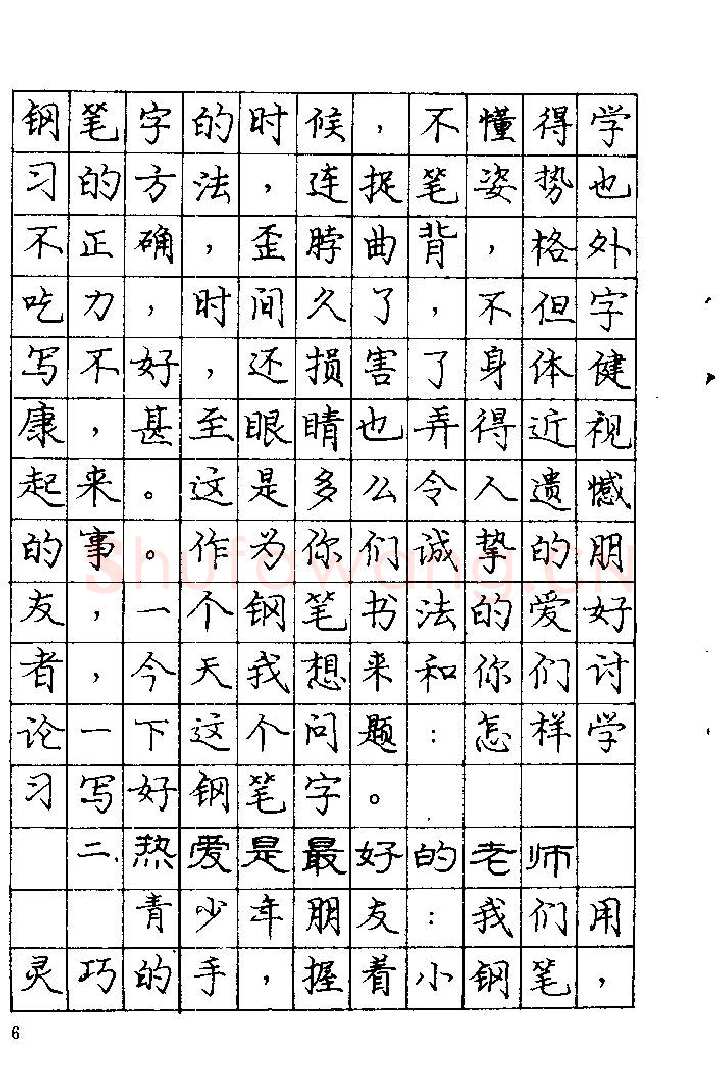 钢笔字的时候，不懂得学
习的方法，连捉笔姿势也
不正确，歪脖曲背，格外
吃力，时间久了，不但字
写不好，还损害了身体健
康，甚至眼睛也弄得近视
起来。这是多么令人遗憾
的事。作为你们诚挚的朋
友，一个钢笔书法的爱好
者，今天我想来和你们讨
论一下这个问题：怎样学
习写好钢笔字。
二、热爱是最好的老师
青少年朋友：我们用
灵巧的手，握着小钢笔，
6
Shufawang.CN